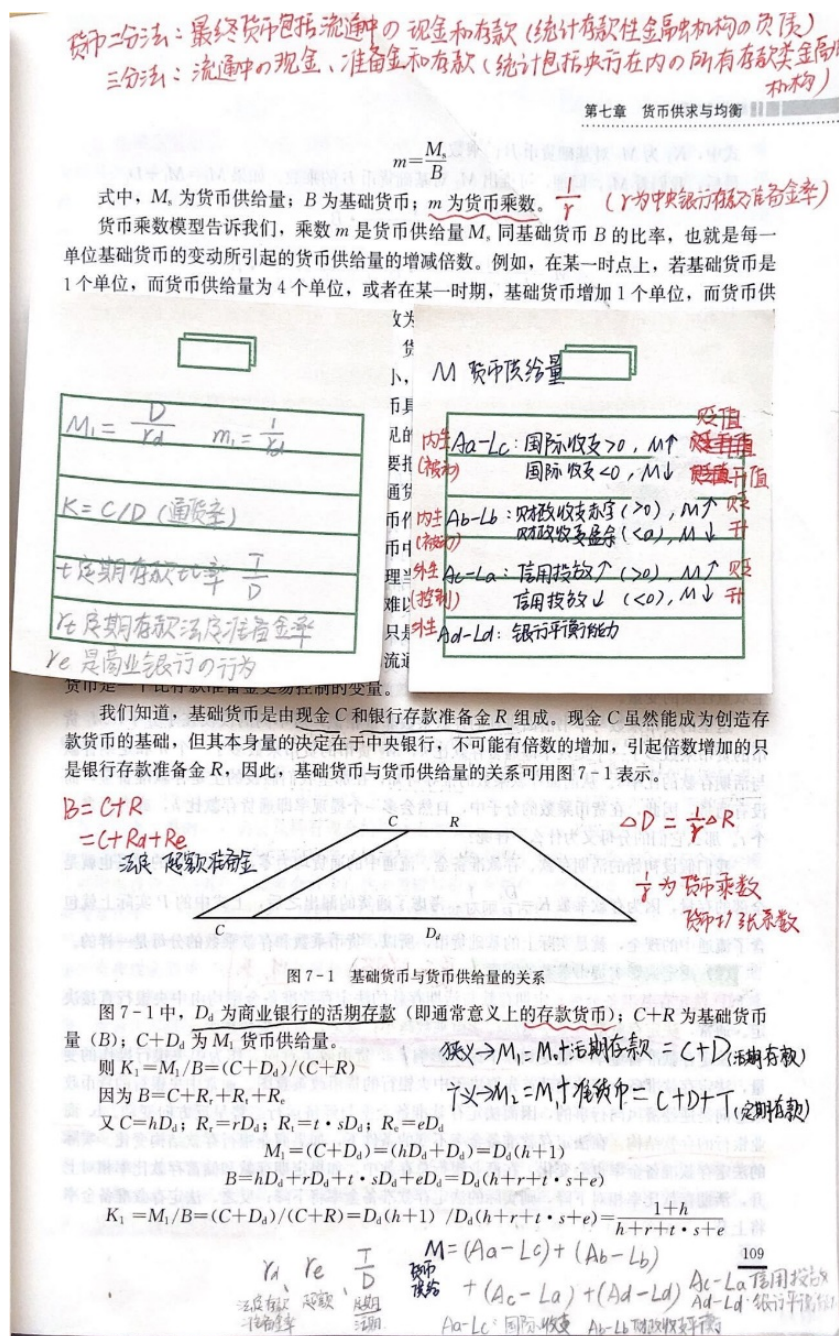 货币二分法：最终货币包括流通中の现金和存款（统计存款性金融机构の负债）
三分法：流通中の现金、准备金和存款（统计包括央行在内の所有存款类金融
机构）
第七章 货币供求与均衡
m=Ms/B
式中，Ms为货币供给量；B为基础货币；m为货币乘数。 1/r （r为中央银行存款准备金率）
货币乘数模型告诉我们，乘数m是货币供给量Ms同基础货币B的比率，也就是每一
单位基础货币的变动所引起的货币供给量的增减倍数。例如，在某一时点上，若基础货币是
1个单位，而货币供给量为4个单位，或者在某一时期，基础货币增加1个单位，而货币供
M1=D/rd m1=1/rd
K=C/D（通货率）
t定期存款比率 T/D
rt定期存款法定准备金率
re是商业银行の行为
M 货币供给量
贬值
内生 Aa-Lc：国际收支>0，M↑
(被动) 国际收支<0，M↓ 升值
内生 Ab-Lb：财政收支赤字（>0），M↑ 贬
(被动) 财政收支盈余（<0），M↓ 升
外生 Ac-La：信用投放↑（>0），M↑ 贬
(控制) 信用投放↓（<0），M↓ 升
外生 Ad-Ld：银行平衡能力
货币是一个比存款准备金更易控制的变量。
我们知道，基础货币是由现金C和银行存款准备金R组成。现金C虽然能成为创造存
款货币的基础，但其本身量的决定在于中央银行，不可能有倍数的增加，引起倍数增加的只
是银行存款准备金R，因此，基础货币与货币供给量的关系可用图7-1表示。
B=C+R
=C+Rd+Re
法定 超额准备金
C R
△D=1/r△R
1/r为货币乘数
货币扩张系数
C Dd
图7-1 基础货币与货币供给量的关系
图7-1中，Dd为商业银行的活期存款（即通常意义上的存款货币）；C+R为基础货币
量（B）；C+Dd为M1货币供给量。
狭义→M1=M0+活期存款=C+D(活期存款)
则K1=M1/B=(C+Dd)/(C+R)
因为B=C+Rr+Rt+Re
广义→M2=M1+准货币=C+D+T(定期存款)
又C=hDd；Rr=rDd；Rt=t·sDd；Re=eDd
M1=(C+Dd)=(hDd+Dd)=Dd(h+1)
B=hDd+rDd+t·sDd+eDd=Dd(h+r+t·s+e)
K1=M1/B=(C+Dd)/(C+R)=Dd(h+1)/Dd(h+r+t·s+e)=1+h/h+r+t·s+e
109
rd、re、T/D
法定存款准备金率 超额 定期/活期
M=(Aa-Lc)+(Ab-Lb)
货币供给
+(Ac-La)+(Ad-Ld) Ac-La信用投放
Ad-Ld 银行平衡能力
Aa-Lc 国际收支 Ab-Lb财政收支平衡